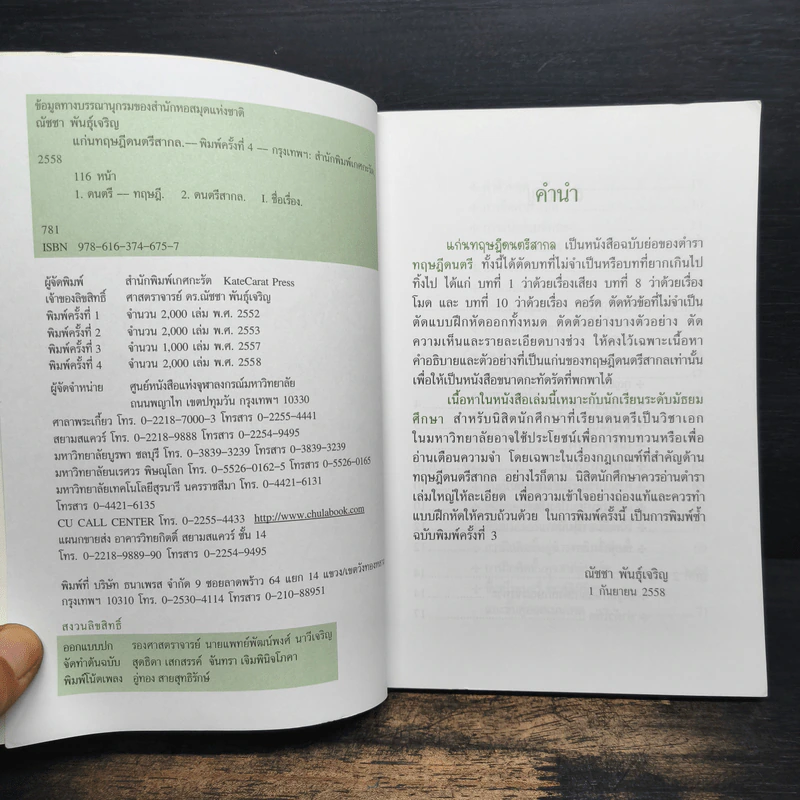 ข้อมูลทางบรรณานุกรมของสำนักหอสมุดแห่งชาติ
ณัชชา พันธุ์เจริญ
แก่นทฤษฎีดนตรีสากล.-- พิมพ์ครั้งที่ 4 -- กรุงเทพฯ: สำนักพิมพ์เกศกะรัต
2558
116 หน้า
1. ดนตรี -- ทฤษฎี. 2. ดนตรีสากล. I. ชื่อเรื่อง.
781
ISBN 978-616-374-675-7
ผู้จัดพิมพ์ สำนักพิมพ์เกศกะรัต KateCarat Press
เจ้าของลิขสิทธิ์ ศาสตราจารย์ ดร.ณัชชา พันธุ์เจริญ
พิมพ์ครั้งที่ 1 จำนวน 2,000 เล่ม พ.ศ. 2552
พิมพ์ครั้งที่ 2 จำนวน 2,000 เล่ม พ.ศ. 2553
พิมพ์ครั้งที่ 3 จำนวน 1,000 เล่ม พ.ศ. 2557
พิมพ์ครั้งที่ 4 จำนวน 2,000 เล่ม พ.ศ. 2558
ผู้จัดจำหน่าย ศูนย์หนังสือแห่งจุฬาลงกรณ์มหาวิทยาลัย
ถนนพญาไท เขตปทุมวัน กรุงเทพฯ 10330
ศาลาพระเกี้ยว โทร. 0-2218-7000-3 โทรสาร 0-2255-4441
สยามสแควร์ โทร. 0-2218-9888 โทรสาร 0-2254-9495
มหาวิทยาลัยบูรพา ชลบุรี โทร. 0-3839-3239 โทรสาร 0-3839-3239
มหาวิทยาลัยนเรศวร พิษณุโลก โทร. 0-5526-0162-5 โทรสาร 0-5526-0165
มหาวิทยาลัยเทคโนโลยีสุรนารี นครราชสีมา โทร. 0-4421-6131
โทรสาร 0-4421-6135
CU CALL CENTER โทร. 0-2255-4433 http://www.chulabook.com
แผนกขายส่ง อาคารวิทยกิตติ์ สยามสแควร์ ชั้น 14
โทร. 0-2218-9889-90 โทรสาร 0-2254-9495
พิมพ์ที่ บริษัท ธนาเพรส จำกัด 9 ซอยลาดพร้าว 64 แยก 14 แขวง/เขตวังทองหลาง
กรุงเทพฯ 10310 โทร. 0-2530-4114 โทรสาร 0-210-88951
สงวนลิขสิทธิ์
ออกแบบปก รองศาสตราจารย์ นายแพทย์พัฒน์พงศ์ นาวีเจริญ
จัดทำต้นฉบับ สุดธิดา เสกสรรค์ จันทรา เจิมพินิจโภคา
พิมพ์โน้ตเพลง อู่ทอง สายสุทธิรักษ์
คำนำ
แก่นทฤษฎีดนตรีสากล เป็นหนังสือฉบับย่อของตำรา
ทฤษฎีดนตรี ทั้งนี้ได้ตัดบทที่ไม่จำเป็นหรือบทที่ยากเกินไป
ทิ้งไป ได้แก่ บทที่ 1 ว่าด้วยเรื่องเสียง บทที่ 8 ว่าด้วยเรื่อง
โมด และ บทที่ 10 ว่าด้วยเรื่อง คอร์ด ตัดหัวข้อที่ไม่จำเป็น
ตัดแบบฝึกหัดออกทั้งหมด ตัดตัวอย่างบางตัวอย่าง ตัด
ความเห็นและรายละเอียดบางช่วง ให้คงไว้เฉพาะเนื้อหา
คำอธิบายและตัวอย่างที่เป็นแก่นของทฤษฎีดนตรีสากลเท่านั้น
เพื่อให้เป็นหนังสือขนาดกะทัดรัดที่พกพาได้
เนื้อหาในหนังสือเล่มนี้เหมาะกับนักเรียนระดับมัธยม
ศึกษา สำหรับนิสิตนักศึกษาที่เรียนดนตรีเป็นวิชาเอก
ในมหาวิทยาลัยอาจใช้ประโยชน์เพื่อการทบทวนหรือเพื่อ
อ่านเตือนความจำ โดยเฉพาะในเรื่องกฎเกณฑ์ที่สำคัญด้าน
ทฤษฎีดนตรีสากล อย่างไรก็ตาม นิสิตนักศึกษาควรอ่านตำรา
เล่มใหญ่ให้ละเอียด เพื่อความเข้าใจอย่างถ่องแท้และควรทำ
แบบฝึกหัดให้ครบถ้วนด้วย ในการพิมพ์ครั้งนี้ เป็นการพิมพ์ซ้ำ
ฉบับพิมพ์ครั้งที่ 3
ณัชชา พันธุ์เจริญ
1 กันยายน 2558